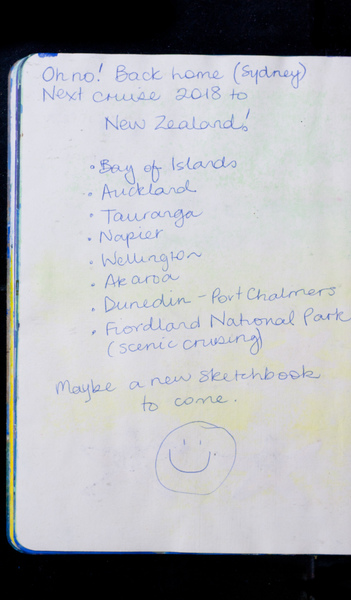 Oh no! Back home (Sydney)
Next cruise 2018 to
New Zealand!
• Bay of Islands
• Auckland
• Tauranga
• Napier
• Wellington
• Akaroa
• Dunedin - Port Chalmers
• Fiordland National Park
(scenic cruising)
Maybe a new sketchbook
to come.